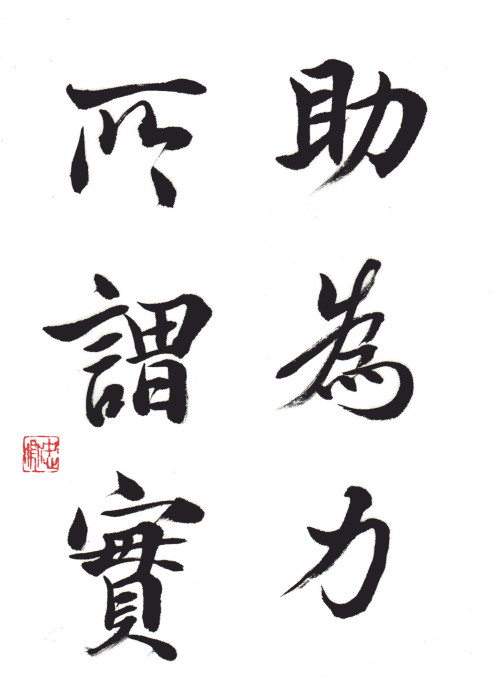 助為力
所謂實